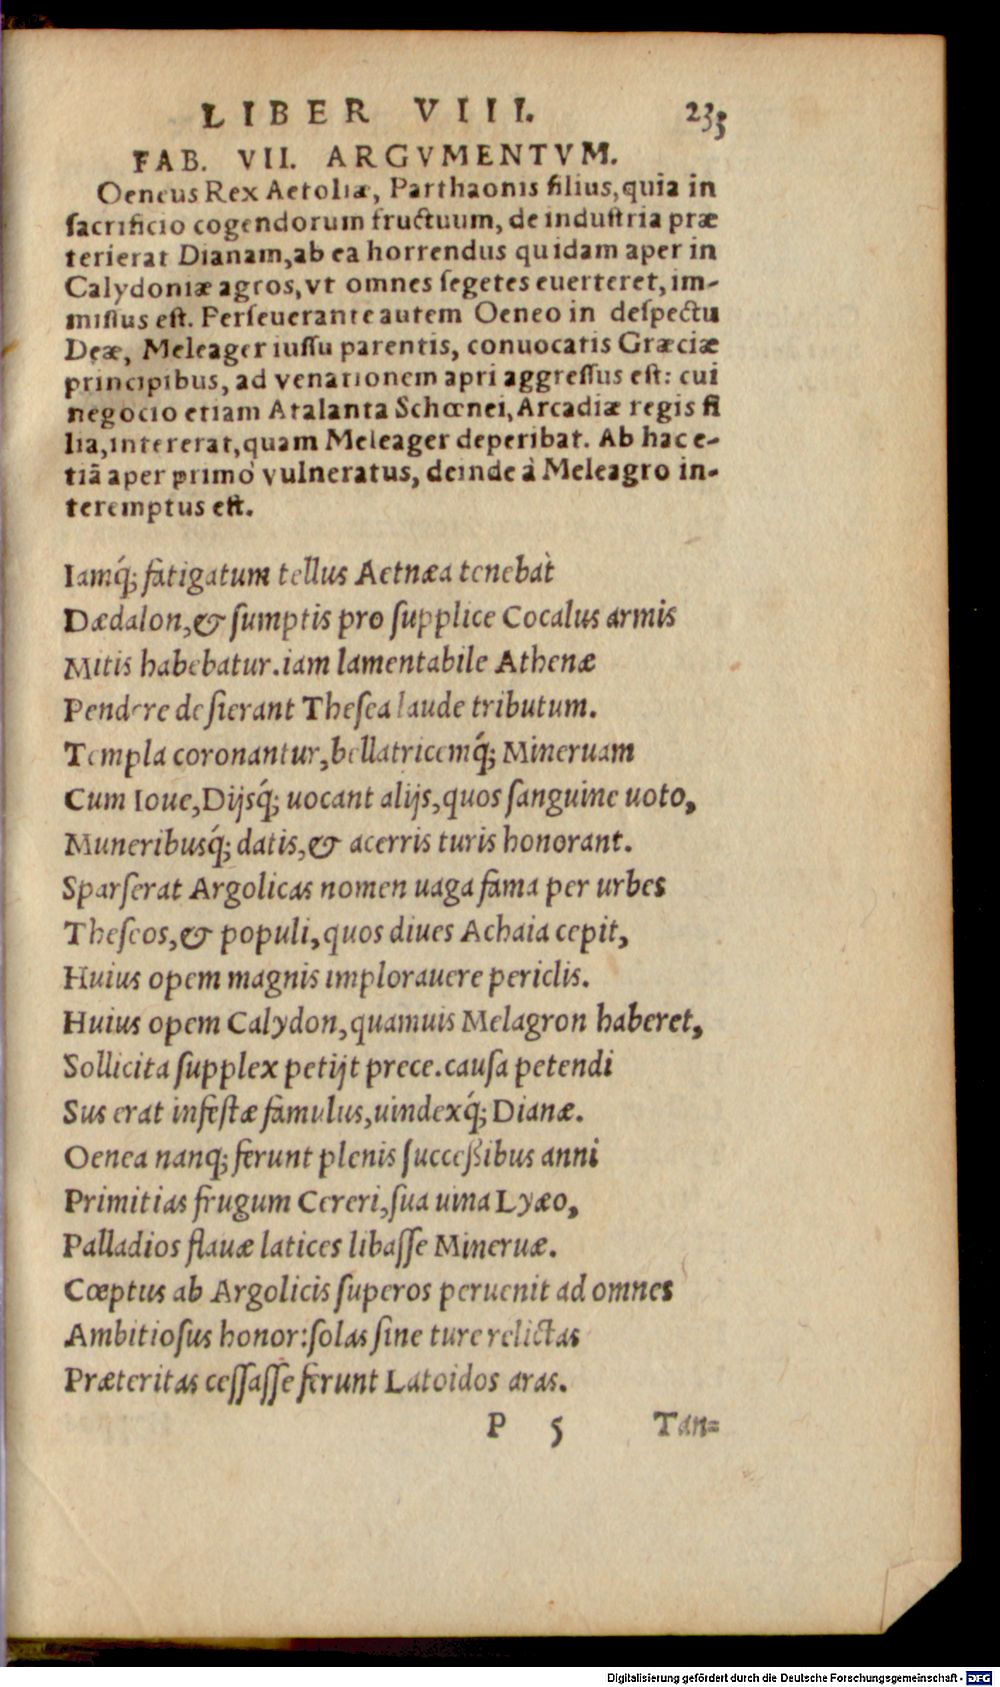 LIBER VIII. 233
FAB. VII. ARGVMENTVM.
Oeneus Rex Aetoliæ, Parthaonis filius, quia in
ſacrificio cogendorum fructuum, de induſtria præ
terierat Dianam, ab ea horrendus quidam aper in
Calydoniæ agros, vt omnes ſegetes euerteret, im-
miſſus eſt. Perſeuerante autem Oeneo in deſpectu
Deæ, Meleager iuſſu parentis, conuocatis Græciæ
principibus, ad venationem apri aggreſſus eſt: cui
negocio etiam Atalanta Schœnei, Arcadiæ regis fi
lia, intererat, quam Meleager deperibat. Ab hac e-
tiã aper primò vulneratus, deinde à Meleagro in-
teremptus eſt.
Iamq́; fatigatum tellus Aetnæa tenebat
Dædalon, & ſumptis pro ſupplice Cocalus armis
Mitis habebatur. iam lamentabile Athenæ
Pendere deſierant Theſea laude tributum.
Templa coronantur, bellatricemq́; Mineruam
Cum Ioue, Dijsq́; uocant alijs, quos ſanguine uoto,
Muneribusq́; datis, & acerris turis honorant.
Sparſerat Argolicas nomen uaga fama per urbes
Theſeos, & populi, quos diues Achaia cepit,
Huius opem magnis implorauere periclis.
Huius opem Calydon, quamuis Melagron haberet,
Sollicita ſupplex petijt prece. cauſa petendi
Sus erat infeſtæ famulus, uindexq́; Dianæ.
Oenea nanq; ferunt plenis ſucceßibus anni
Primitias frugum Cereri, ſua uina Lyæo,
Palladios flauæ latices libaſſe Mineruæ.
Cœptus ab Argolicis ſuperos peruenit ad omnes
Ambitioſus honor: ſolas ſine ture relictas
Præteritas ceſſaſſe ferunt Latoidos aras.
P 5 Tan=
Digitalisierung gefördert durch die Deutsche Forschungsgemeinschaft - DFG